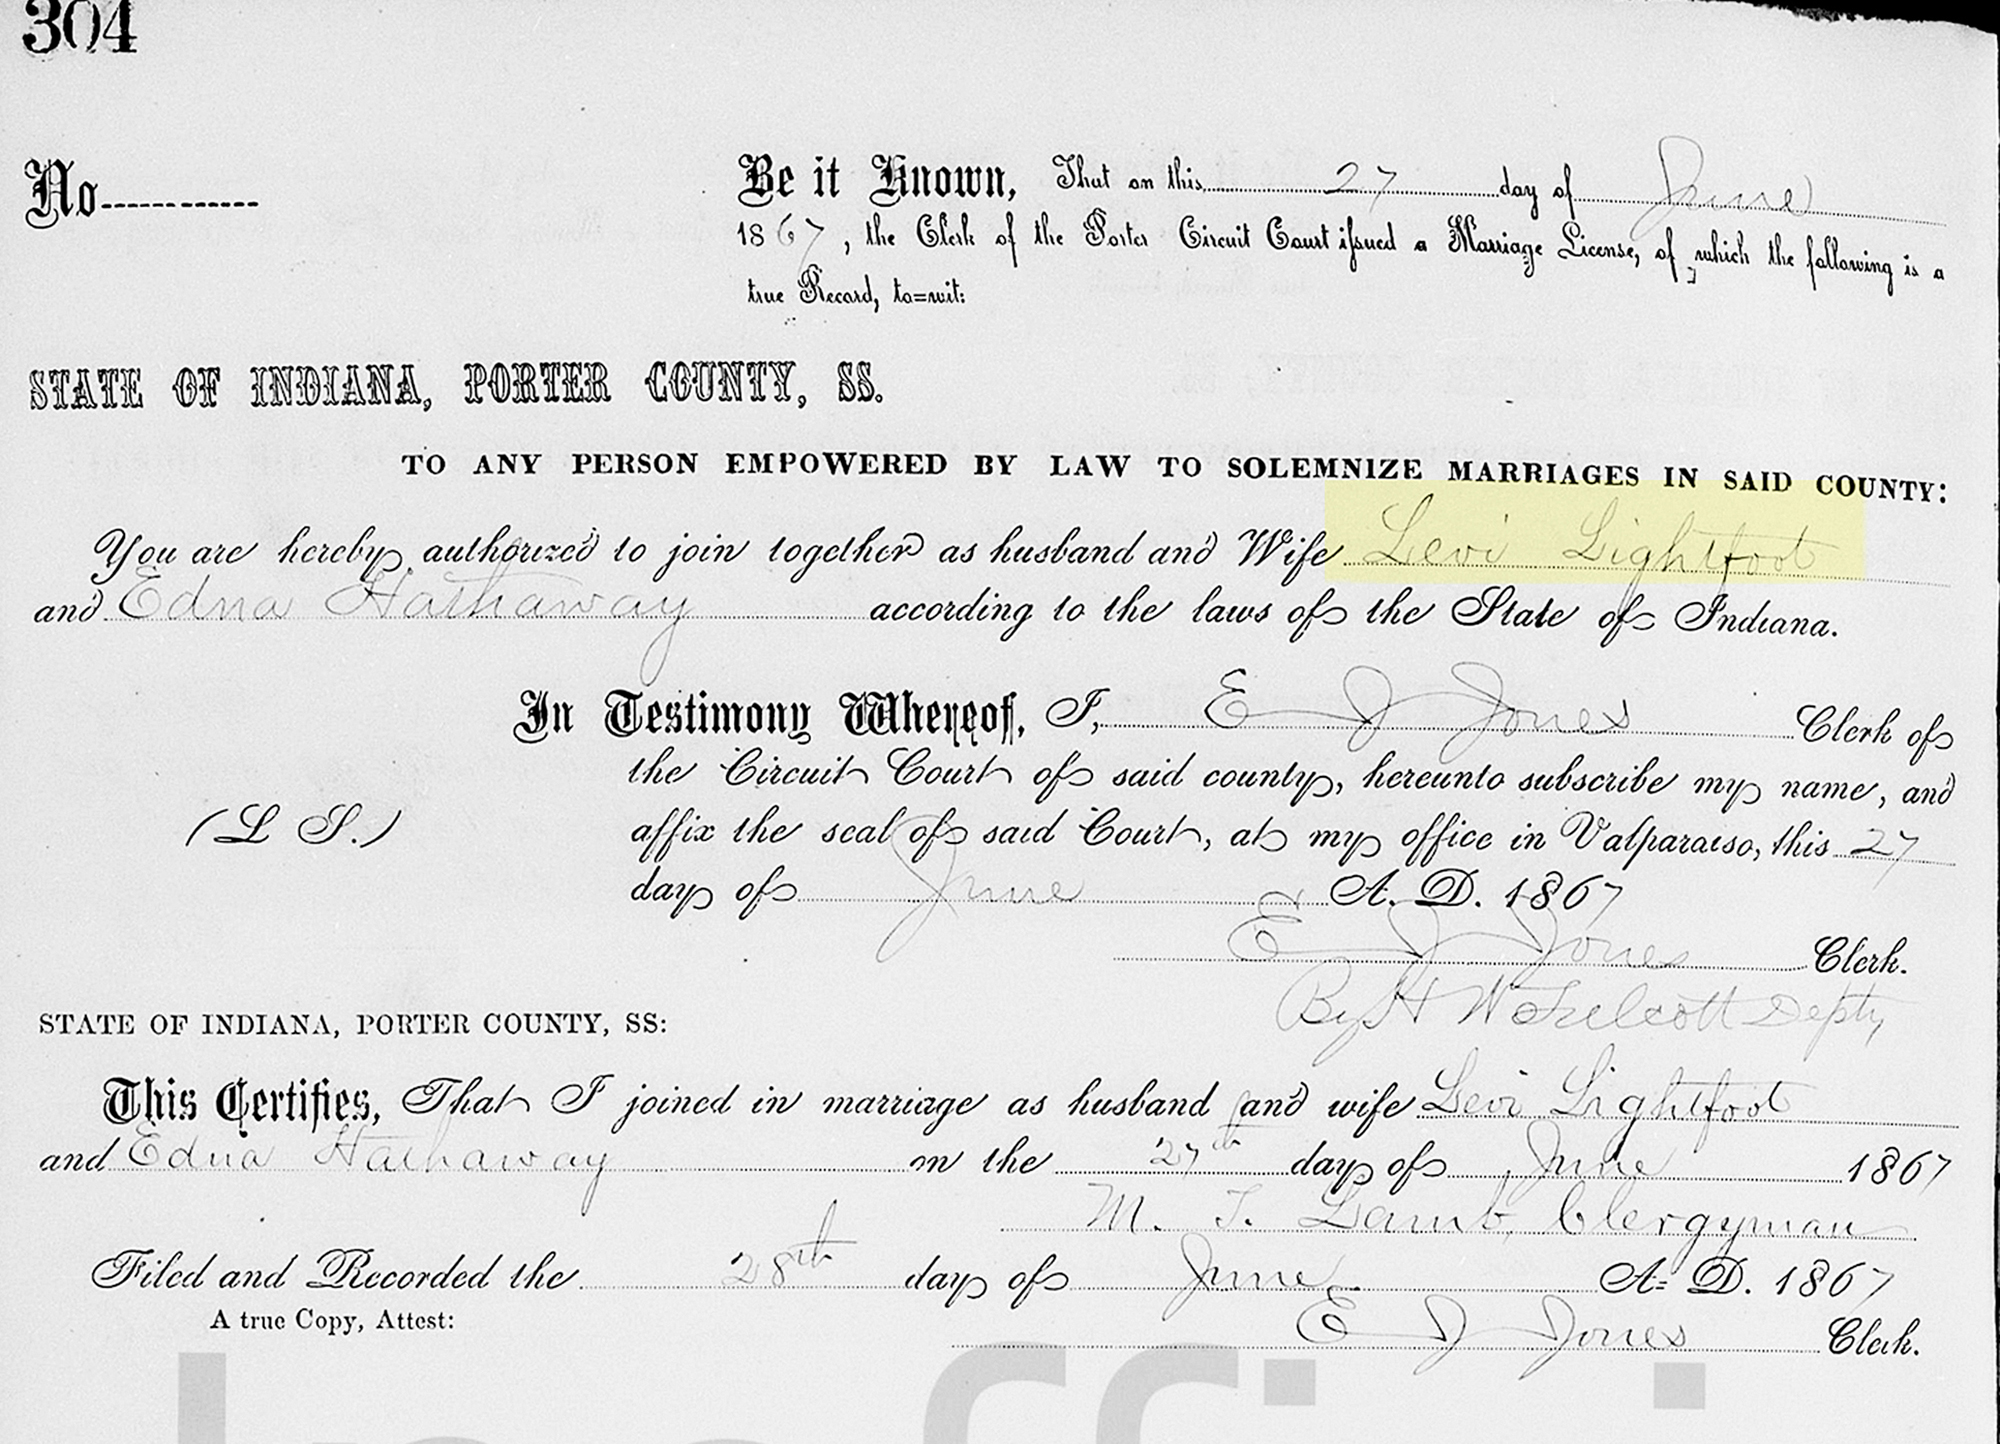 304
No
Be it Known, That on this 27 day of June
1867, the Clerk of the Porter Circuit Court issued a Marriage License, of which the following is a
true Record, to=wit:
STATE OF INDIANA, PORTER COUNTY, SS.
TO ANY PERSON EMPOWERED BY LAW TO SOLEMNIZE MARRIAGES IN SAID COUNTY:
You are hereby authorized to join together as husband and Wife Levi Lightfoot
and Edna Hathaway according to the laws of the State of Indiana.
In Testimony Whereof, I, E J Jones Clerk of
the Circuit Court of said county, hereunto subscribe my name, and
(L S.) affix the seal of said Court, at my office in Valparaiso, this 27
day of June A. D. 1867
E J Jones Clerk.
By H W Depty
STATE OF INDIANA, PORTER COUNTY, SS:
This Certifies, That I joined in marriage as husband and wife Levi Lightfoot
and Edna Hathaway on the 27th day of June 1867
M. T. Lamb, Clergyman
Filed and Recorded the 28th day of June A. D. 1867
A true Copy, Attest:
E J Jones Clerk.